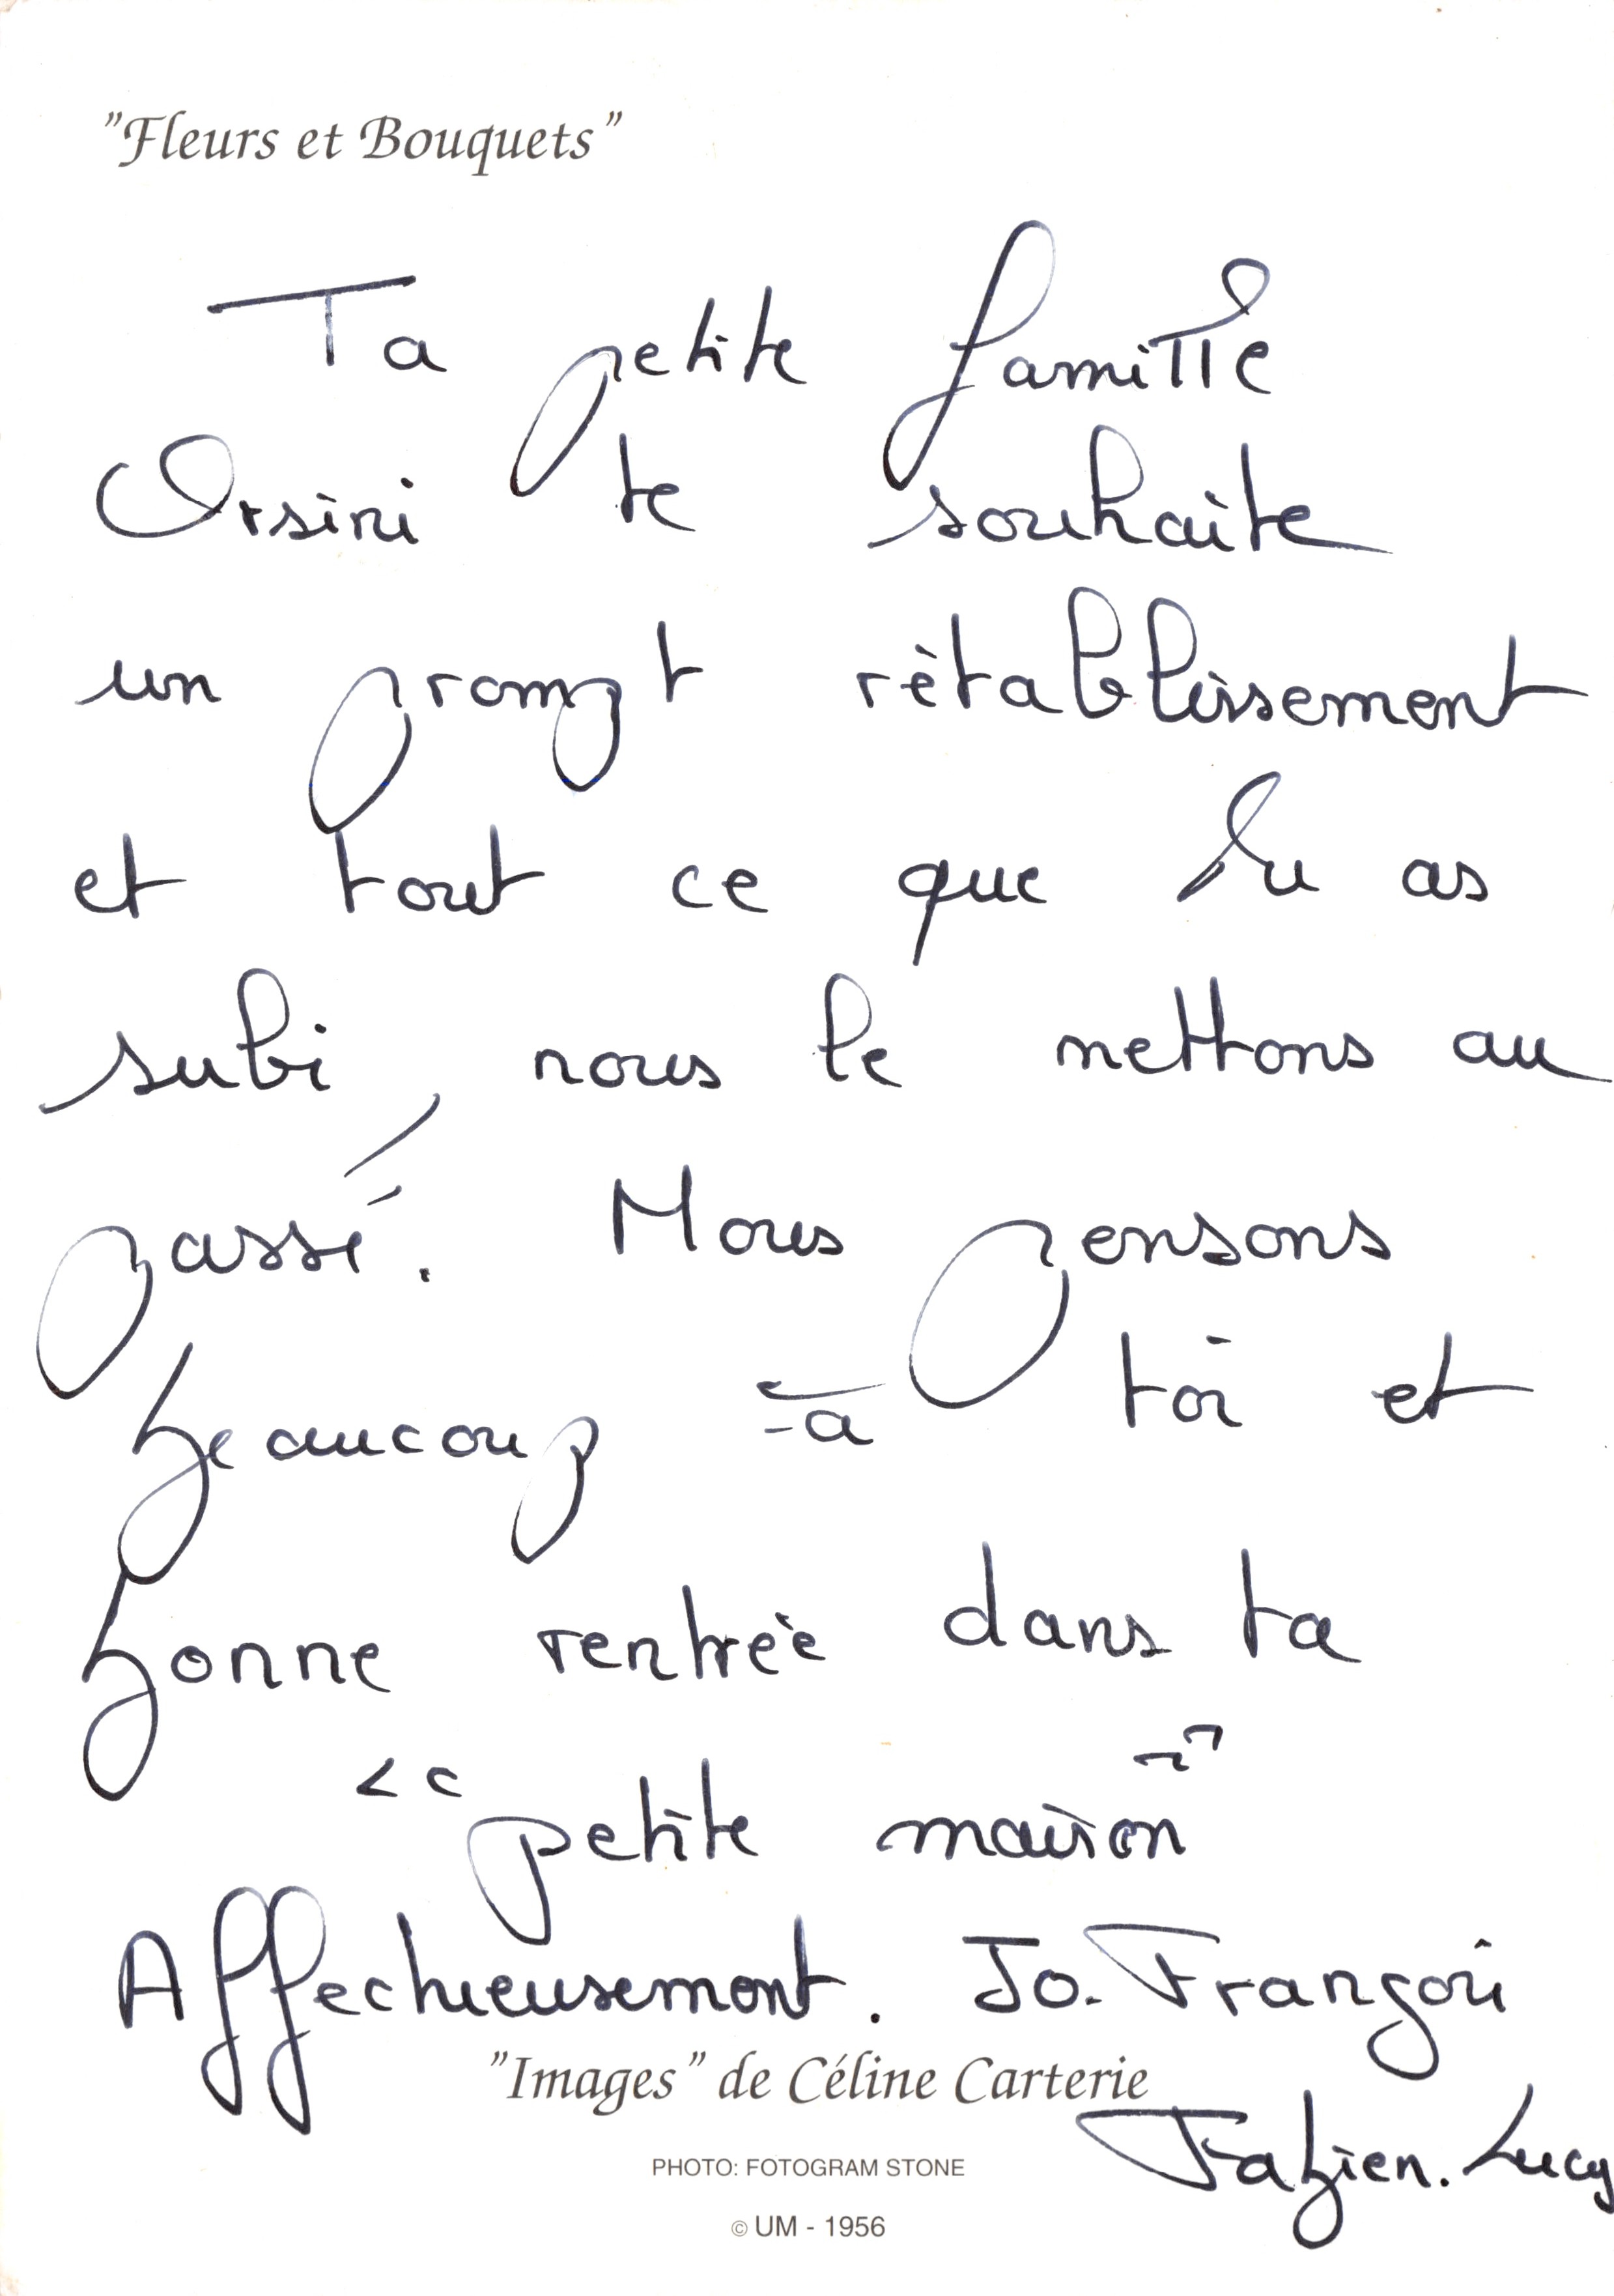 "Fleurs et Bouquets"
Ta petite famille
Orsini te souhaite
un prompt rétablissement
et tout ce que tu as
subi, nous le mettons au
passé. Nous pensons
beaucoup à toi et
bonne rentrée dans ta
"petite maison"
Affectueusement. Jo. François
"Images" de Céline Carterie
Fabien. Lucy
PHOTO: FOTOGRAM STONE
© UM - 1956